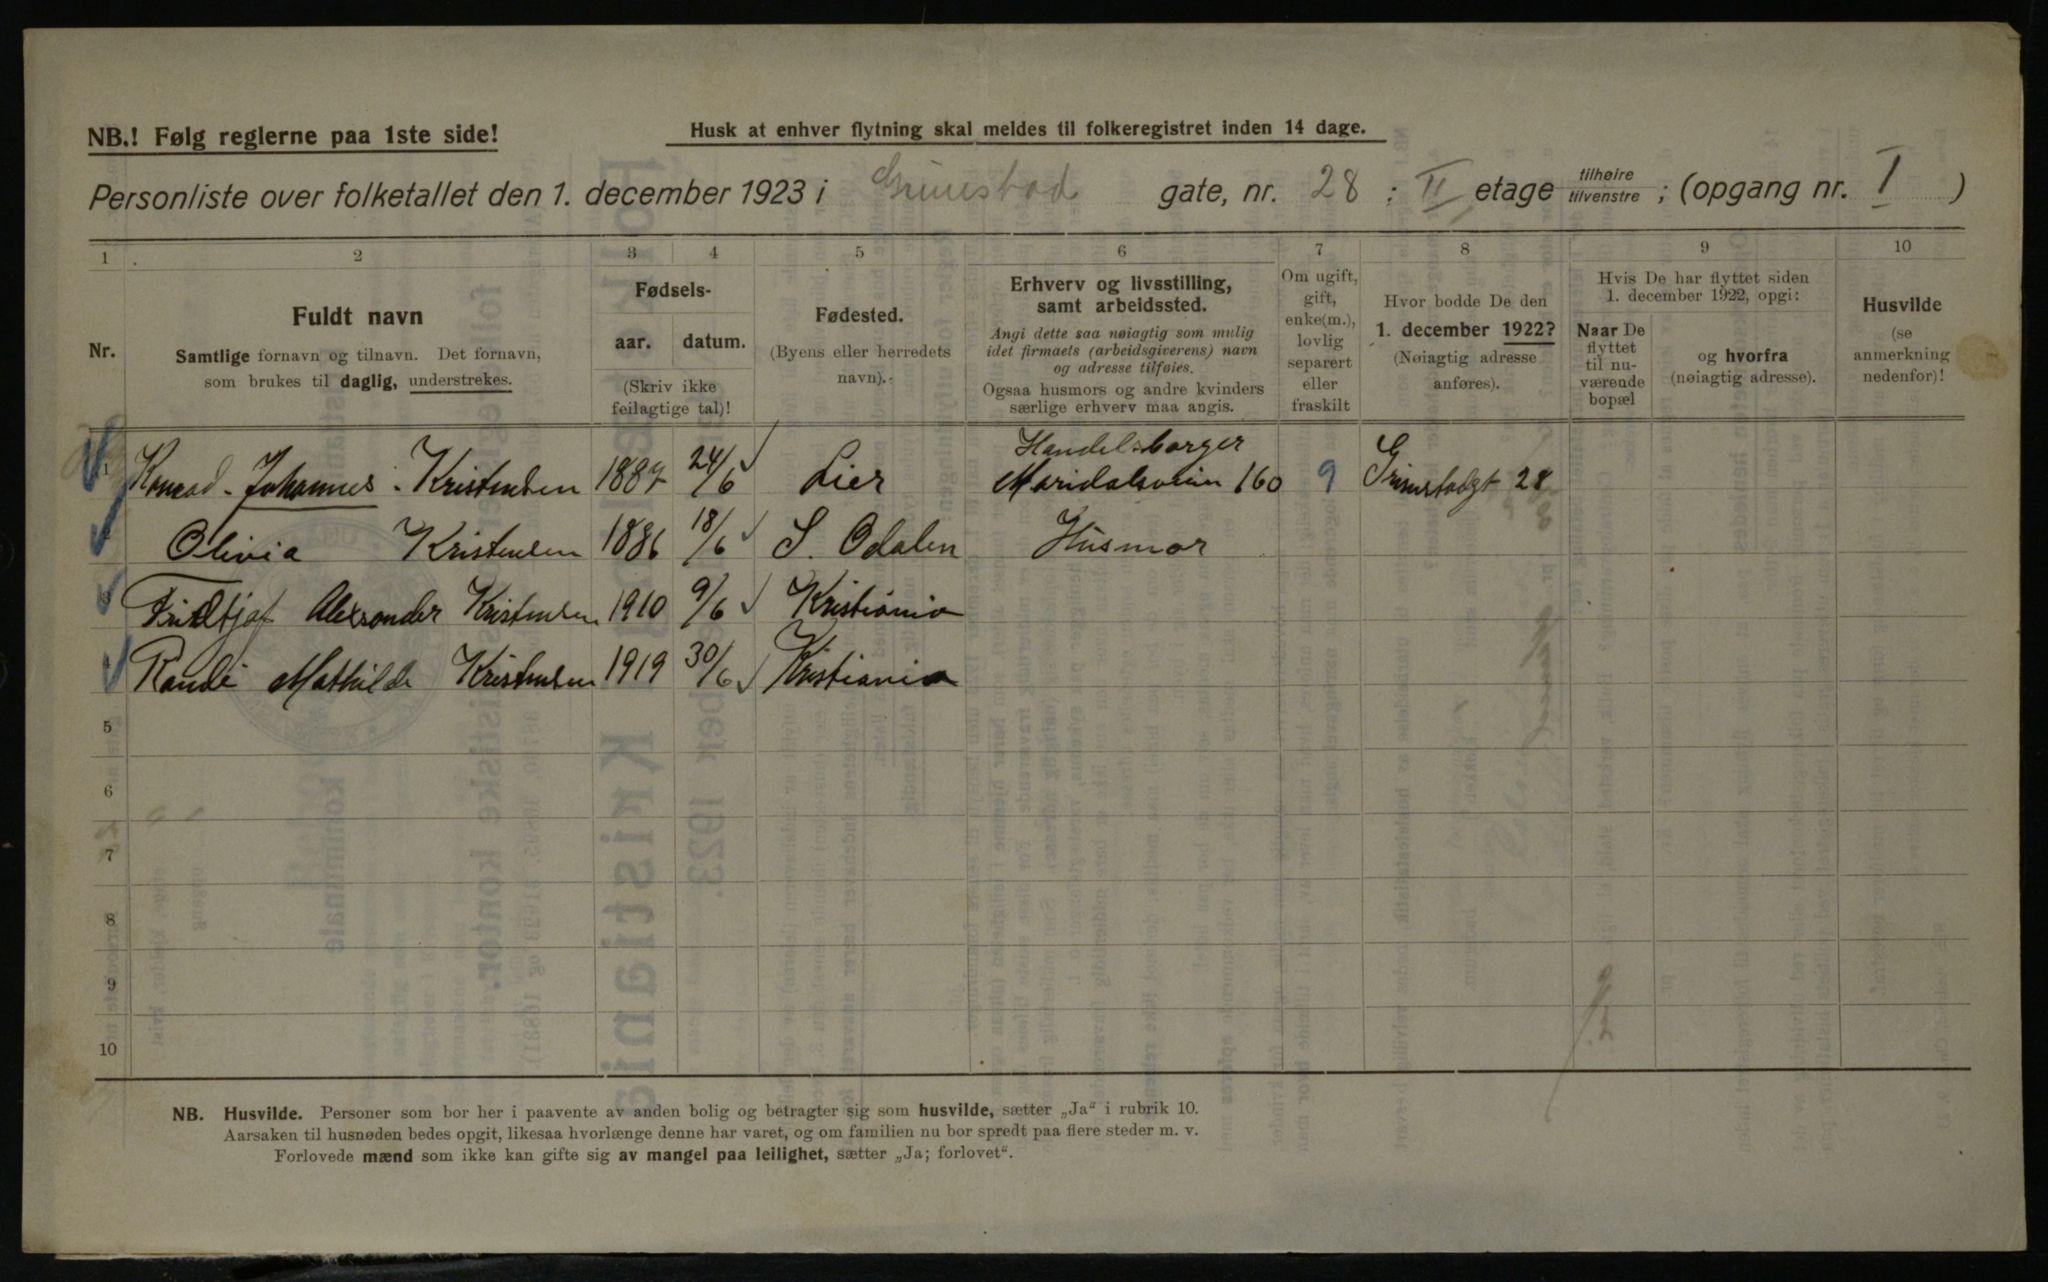 NB.! Følg reglerne paa 1ste side!
Husk at enhver flytning skal meldes til folkeregistret inden 14 dage.
Personliste over folketallet den 1. december 1923 i Grimstad gate, nr. 28 ; II etage tilhøire tilvenstre ; (opgang nr. I )
1 2 3 4 5 6 7 8 9 10
Nr.
Fuldt navn
Samtlige fornavn og tilnavn. Det fornavn,
som brukes til daglig, understrekes.
Fødsels-
aar. datum.
(Skriv ikke
feilagtige tal)!
Fødested.
(Byens eller herredets
navn).
Erhverv og livsstilling,
samt arbeidssted.
Angi dette saa nøiagtig som mulig
idet firmaets (arbeidsgiverens) navn
og adresse tilføies.
Ogsaa husmors og andre kvinders
særlige erhverv maa angis.
Om ugift,
gift,
enke(m.),
lovlig
separert
eller
fraskilt
Hvor bodde De den
1. december 1922?
(Nøiagtig adresse
anføres).
Hvis De har flyttet siden
1. december 1922, opgi:
Naar De
flyttet
til nu-
værende
bopæl
og hvorfra
(nøiagtig adresse).
Husvilde
(se
anmerkning
nedenfor)!
Handelsborger
1 Konrad - Johannes - Kristensen 1887 24/6 Lier Maridalsveien 160 9 Grimstadgt 28
Olivia Kristensen 1886 18/6 S. Odalen Husmor
3 Fridtjof Alexander Kristensen 1910 9/6 Kristiania
4 Randi Mathilde Kristensen 1919 30/6 Kristiania
5
6
7
8
9
10
NB. Husvilde. Personer som bor her i paavente av anden bolig og betragter sig som husvilde, sætter „Ja“ i rubrik 10.
Aarsaken til husnøden bedes opgit, likesaa hvorlænge denne har varet, og om familien nu bor spredt paa flere steder m. v.
Forlovede mænd som ikke kan gifte sig av mangel paa leilighet, sætter „Ja; forlovet“.